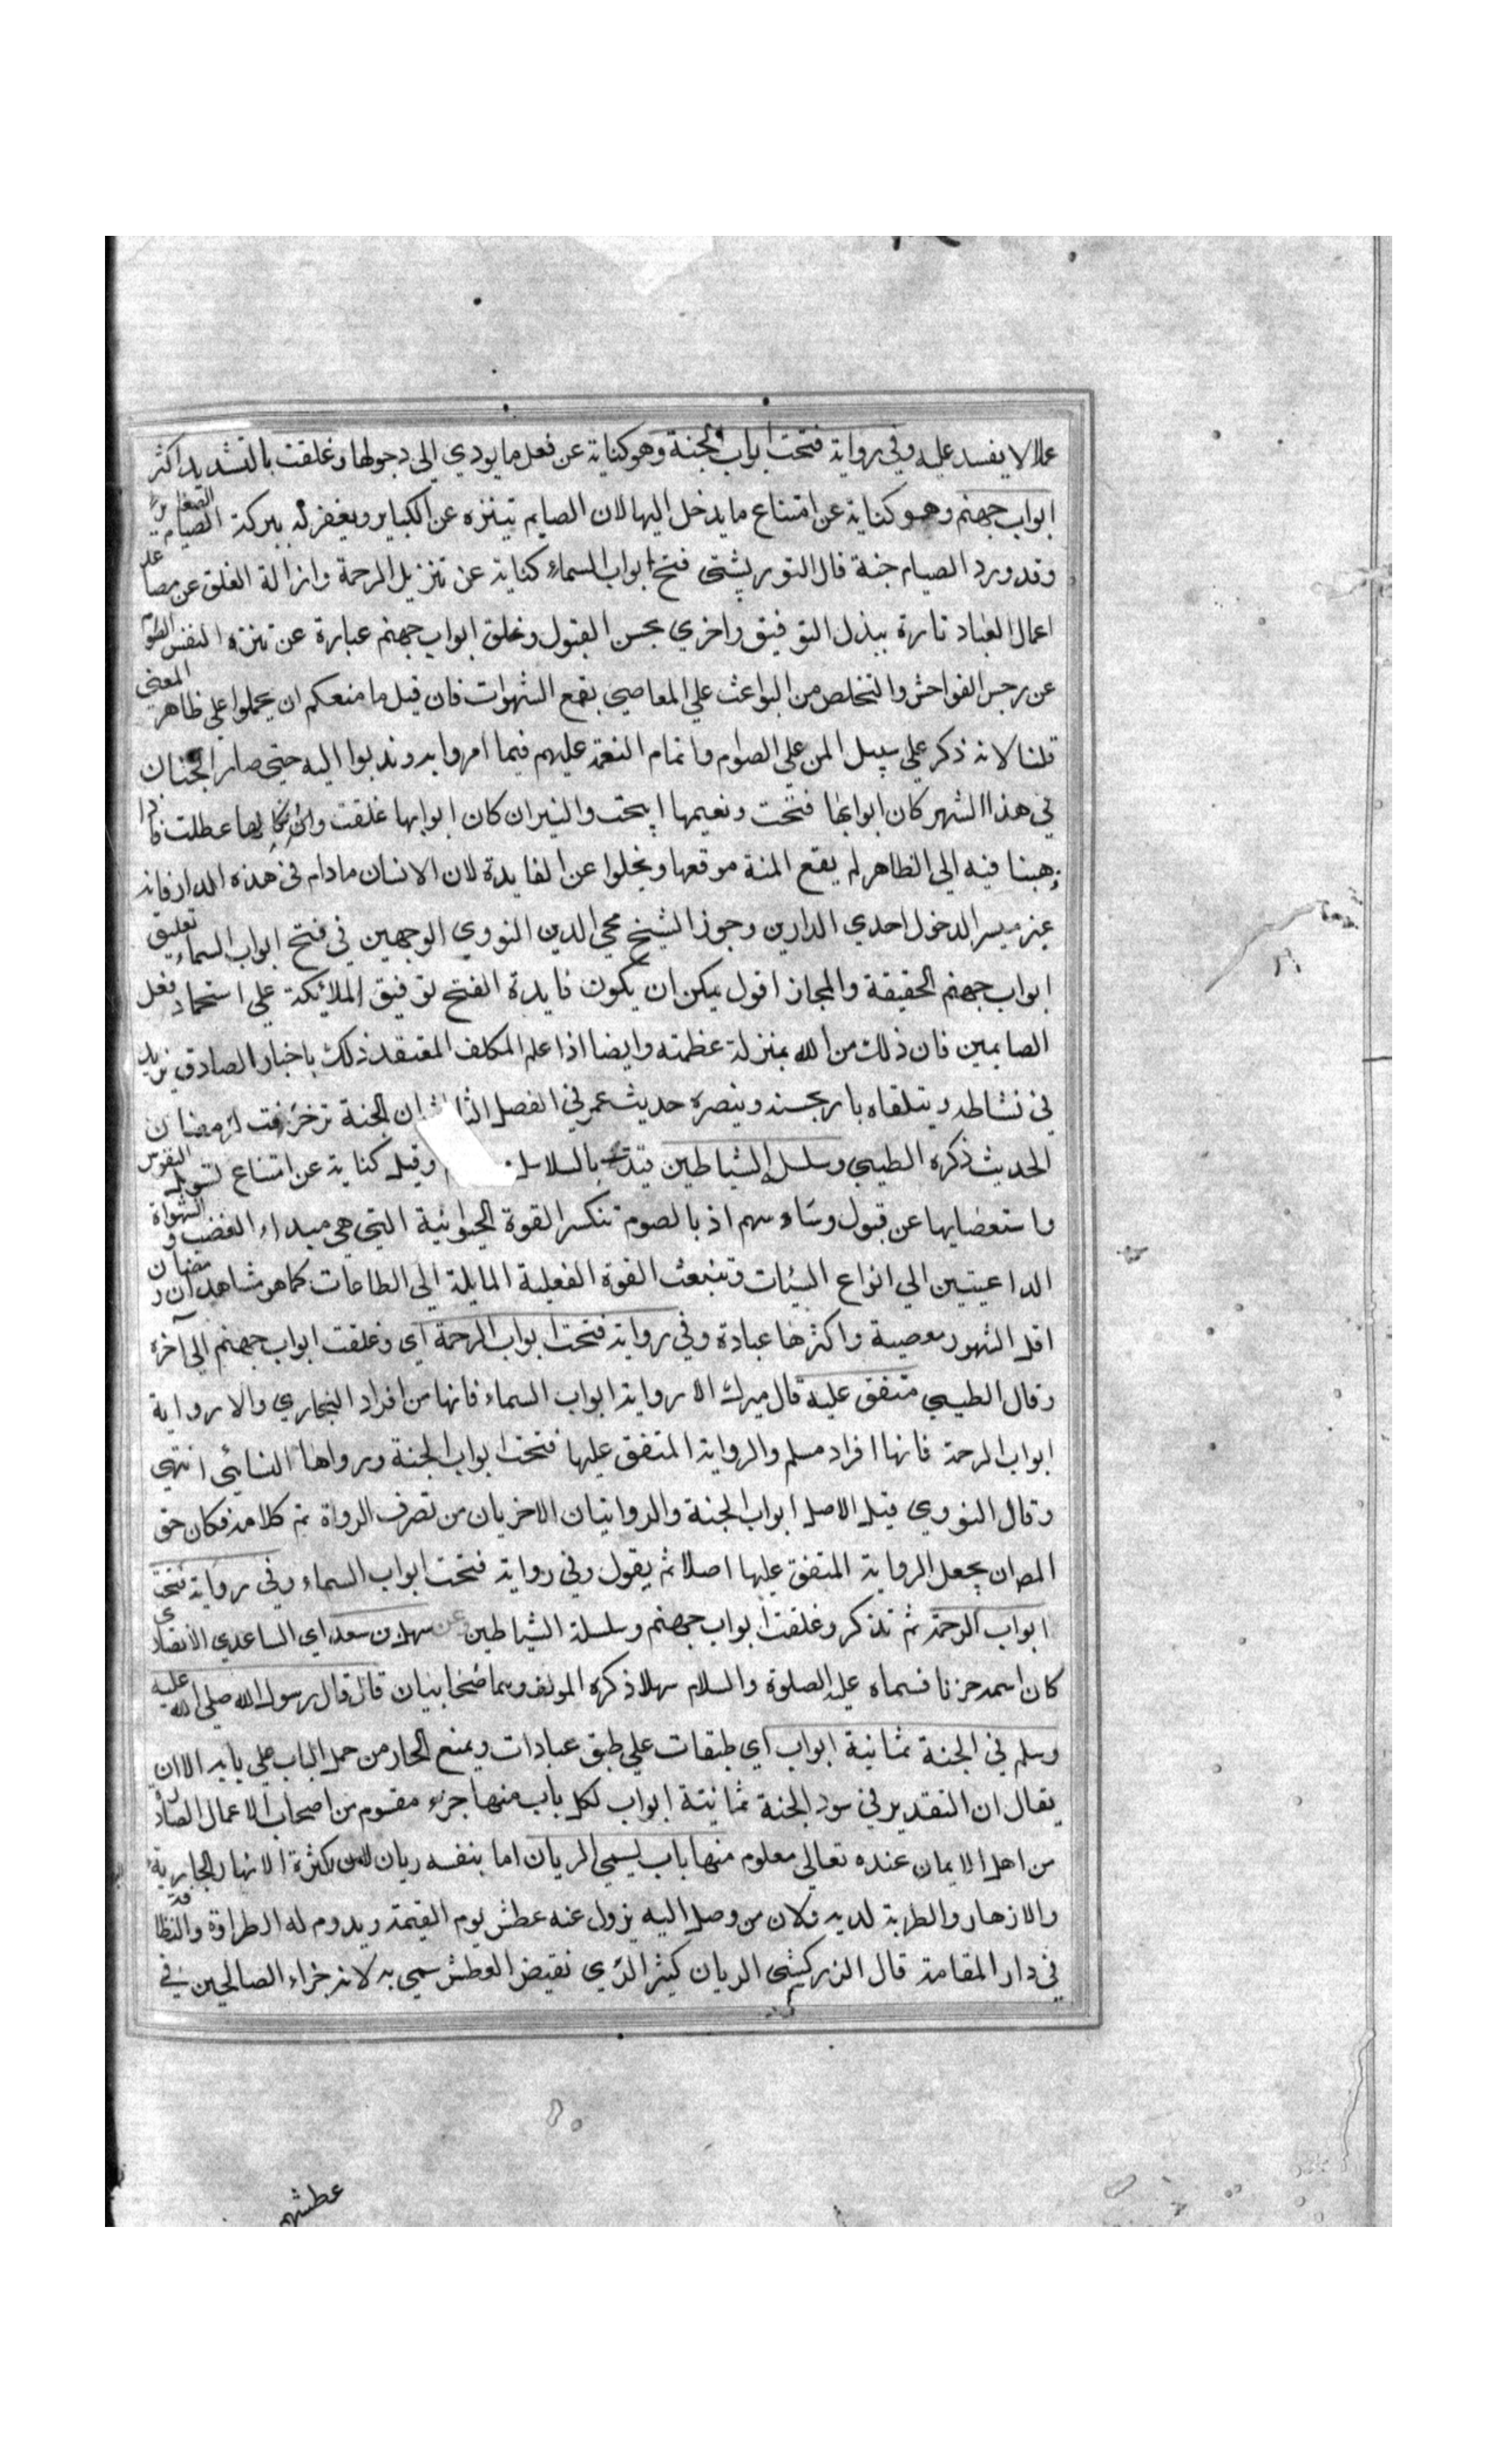 عملا لا يفسد عليه وفي رواية فتحت ابواب الجنة وهو كناية عن فعل ما يودي الى دخولها وغلقت بالتشديد اكثر
ابواب جهنم وهو كناية عن امتناع ما يدخل اليها لان الصايم يتنزه عن الكباير ويغفر له ببركة الصيام الصغاير
وقد ورد الصيام جنة قال التوربشتى فتح ابواب السماء كناية عن تنزيل الرحمة وازالة الغلق عن مصاعد
اعمال العباد تارة ببذل التوفيق واخري بحسن القبول وغلق ابواب جهنم عبارة عن تنزه النفس الصوام
عن رجس الفواحش والتخلص من البواعث علي المعاصي بقمع الشهوات فان قيل ما منعكم ان تحملوا علي ظاهر المعنى
قلنا لانه ذكر علي سبيل المن علي الصوام واتمام النعمة عليهم فيما امروا به وندبوا اليه حتى صار الجنان
في هذا الشهر كان ابوابها فتحت ونعيمها ابيحت والنيران كان ابوابها غلقت وانكالها عطلت فاذا
ذهبنا فيه الى الظاهر لم يقع المنة موقعها ويخلوا عن الفايدة لان الانسان مادام في هذه الدار فانه
غير ميسر لدخول احدي الدارين وجوز الشيخ محي الدين النووي الوجهين في فتح ابواب السماء وتغليق
ابواب جهنم الحقيقة والمجاز اقول يمكن ان يكون فايدة الفتح توفيق الملائكة علي استحماد فعل
الصايمين فان ذلك من الله بمنزلة عظيمة وايضا اذا علم المكلف المعتقد ذلك باخبار الصادق يزيد
في نشاطه ويتلقاه باريحية وينصره حديث عمر في الفصل الثالث ان الجنة تزخرفت لرمضان
الحديث ذكره الطيبي وسلسل الشياطين قيدت بالسلاسل وقيل كناية عن امتناع تسويل النفوس
واستعصايها عن قبول وساوسهم اذ بالصوم تنكسر القوة الحيوانية التي هي مبداء الغضب والشهواة
الداعيتين الي انواع السيئات وتنبعث القوة الفعلية المايلة الى الطاعات كما هو مشاهد ان رمضان
اقل الشهور معصية واكثرها عبادة وفي رواية فتحت ابواب الرحمة اي وغلقت ابواب جهنم الى آخره
وقال الطيبي متفق عليه قال ميرك الا رواية ابواب السماء فانها من افراد البخاري والا رواية
ابواب الرحمة فانها افراد مسلم والرواية المتفق عليها فتحت ابواب الجنة ورواها النسائي انتهى
وقال النووي قيل الاصل ابواب الجنة والروايتان الاخريان من تصرف الرواة تم كلامه فكان حق
المص ان يجعل الرواية المتفق عليها اصلا ثم يقول وفي رواية فتحت ابواب السماء وفي رواية فتحت
ابواب الرحمة ثم تذكر وغلقت ابواب جهنم وسلسلة الشياطين وعن سهل بن سعد اي الساعدي الانصاري
كان اسمه حزنا فسماه عليه الصلوة والسلام سهلا ذكره المولف وهما صحابيان قال قال رسول الله صلى الله عليه
وسلم في الجنة ثمانية ابواب اي طبقات علي طبق عبادات ويمنع الحار من حمل الباب علي بابه الا ان
يقال ان التقدير في سور الجنة ثمانية ابواب لكل باب منها جزء مقسوم من اصحاب الاعمال الصادرة
من اهل الايمان عنده تعالى معلوم منها باب يسمي الريان اما بنفسه ريان لكثرة الانهار الجارية
والازهار والطربة لديه ولان من وصل اليه يزول عنه عطش يوم القيمة ويدوم له الطراوة والنظافة
في دار المقامة قال الزركشى الريان كثير الري نقيض العطش سمي به لانه جزاء الصالحين في
عطشهم